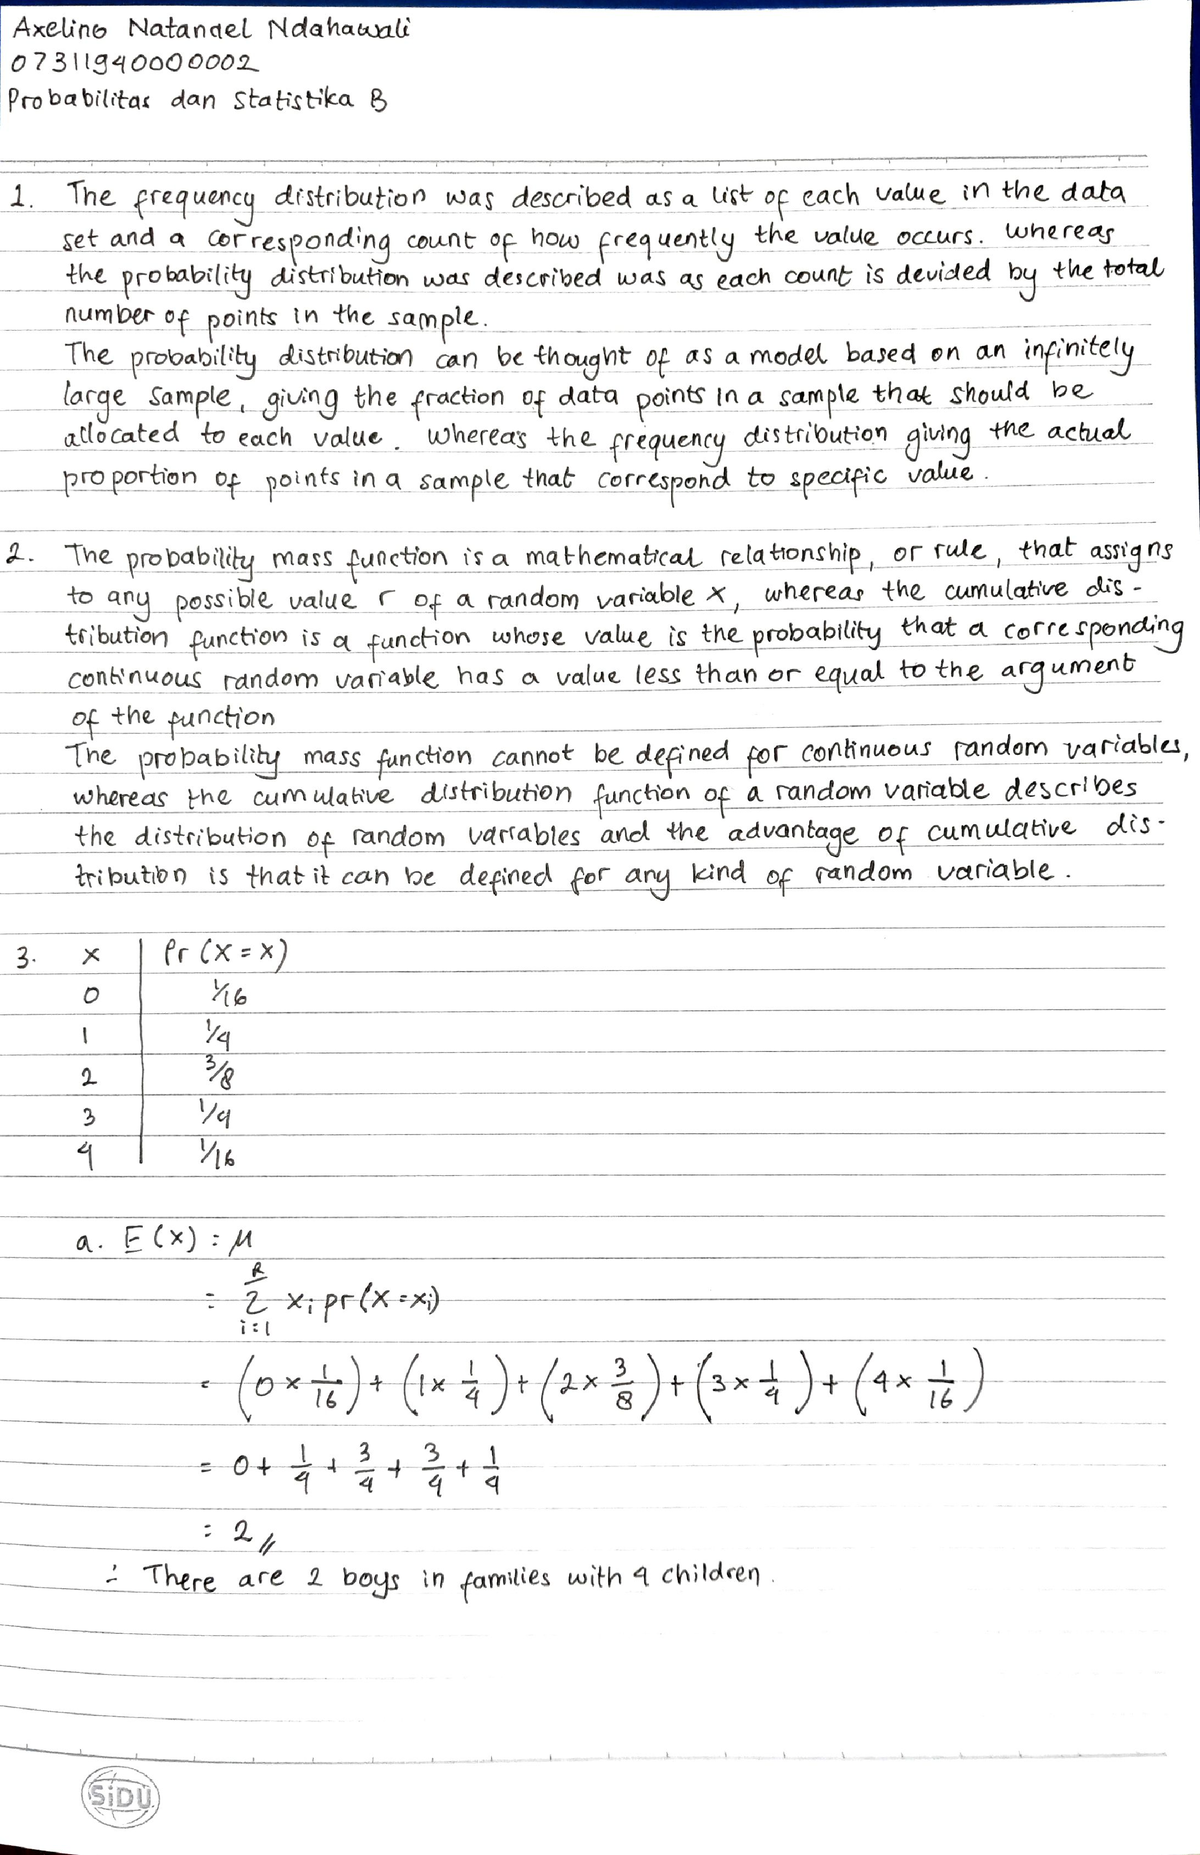 Axelino Natanael Ndahawali
07311940000002
Probabilitas dan Statistika B
1. The frequency distribution was described as a list of each value in the data
set and a corresponding count of how frequently the value occurs. Whereas
the probability distribution was described was as each count is devided by the total
number of points in the sample.
The probability distribution can be thought of as a model based on an infinitely
large sample, giving the fraction of data points in a sample that should be
allocated to each value. Whereas the frequency distribution giving the actual
proportion of points in a sample that correspond to specific value.
2. The probability mass function is a mathematical relationship, or rule, that assigns
to any possible value r of a random variable X, whereas the cumulative dis-
tribution function is a function whose value is the probability that a corresponding
continuous random variable has a value less than or equal to the argument
of the function
The probability mass function cannot be defined for continuous random variables,
whereas the cumulative distribution function of a random variable describes
the distribution of random variables and the advantage of cumulative dis-
tribution is that it can be defined for any kind of random variable.
3. x Pr (X = x)
0 1/16
1 1/4
2 3/8
3 1/4
4 1/16
a. E (x) : μ
= R Σ i=1 xi pr(X = xi)
= (0 × 1/16) + (1 × 1/4) + (2 × 3/8) + (3 × 1/4) + (4 × 1/16)
= 0 + 1/4 + 3/4 + 3/4 + 1/4
= 2 //
∴ There are 2 boys in families with 4 children.
SiDU